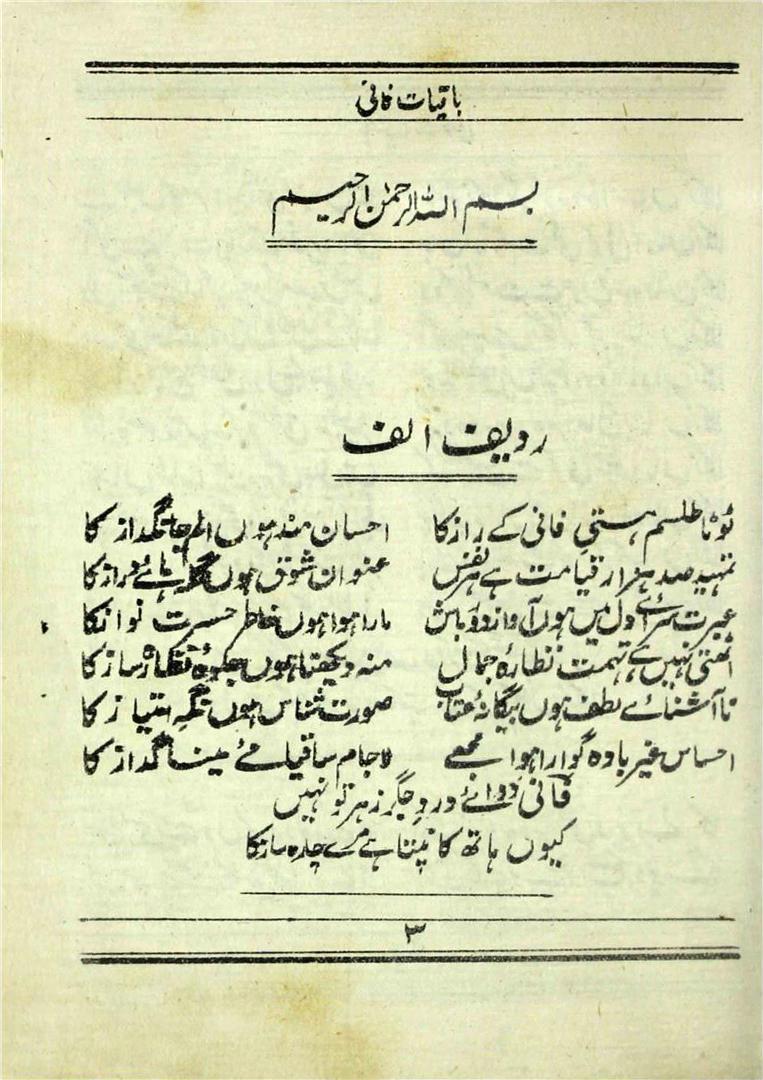 باقیات فانی
بسم اللہ الرحمٰن الرحیم
ردیف الف
ٹوٹا طلسم ہستیِ فانی کے راز کا احسان مند ہوں الم جانگداز کا
تمہید صد ہزار قیامت ہے ہر نفس عنوان شوق ہوں گلہ ہائے دراز کا
عبرت سرائے دل میں ہوں آوازِ دورباش مارا ہوا ہوں خاطر حسرت نواز کا
اٹھتی نہیں ہے تہمت نظارۂ جمال منہ دیکھتا ہوں جلوۂ نظارہ ساز کا
ناآشنائے لطف ہوں بیگانۂ عتاب صورت شناس ہوں نگہِ امتیاز کا
احساس غیر بادہ گوارا ہوا مجھے لا جام ساقیا مئے مینا گداز کا
فانی دوائے دردِ جگر زہر تو نہیں
کیوں ہاتھ کانپتا ہے مرے چارہ ساز کا
۳